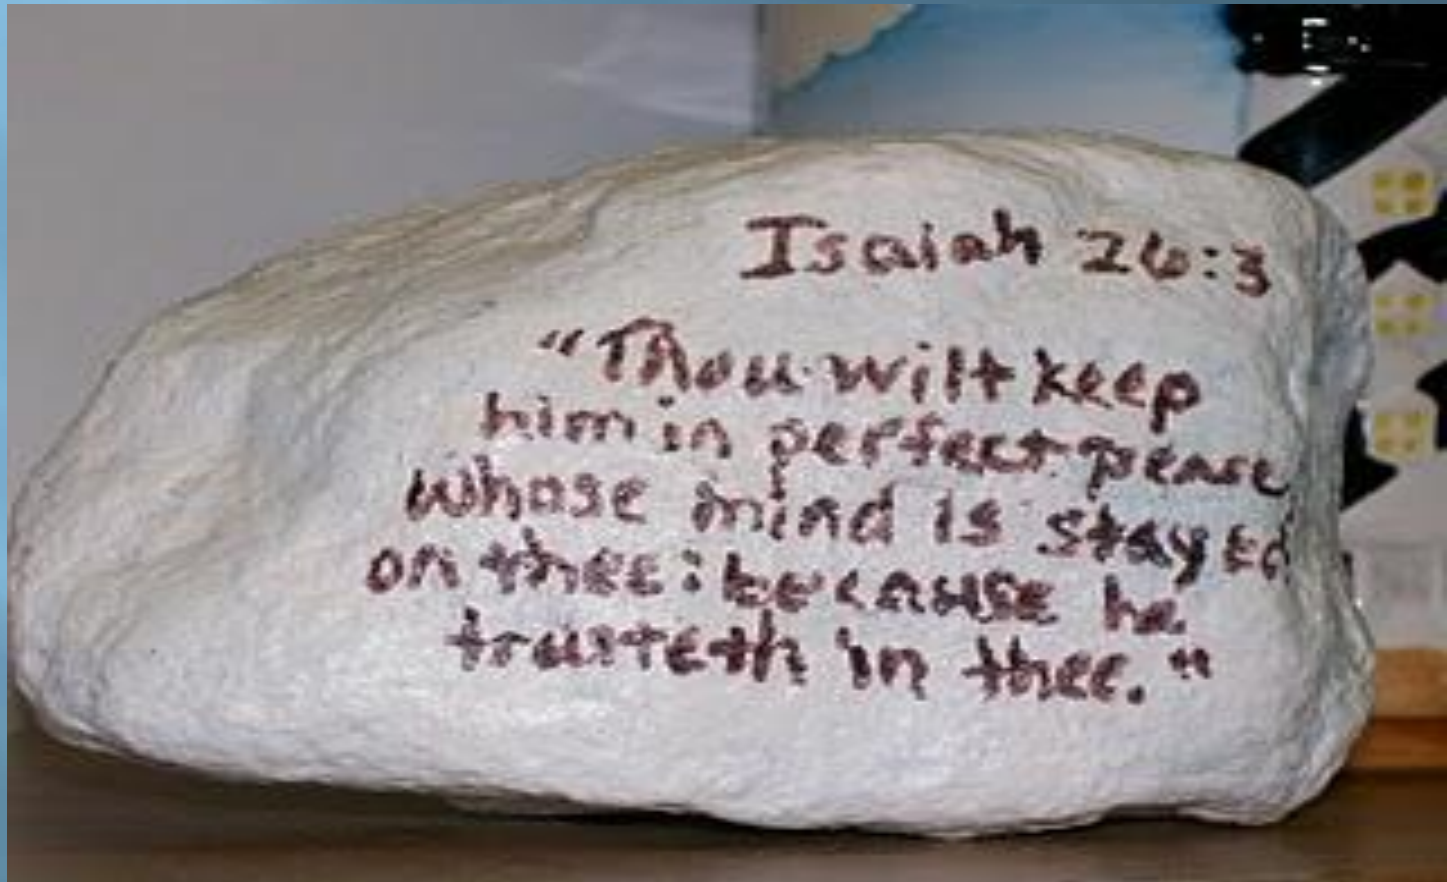 Isaiah 26:3
"Thou wilt keep
him in perfect peace
whose mind is stayed
on thee: because he
trusteth in thee."